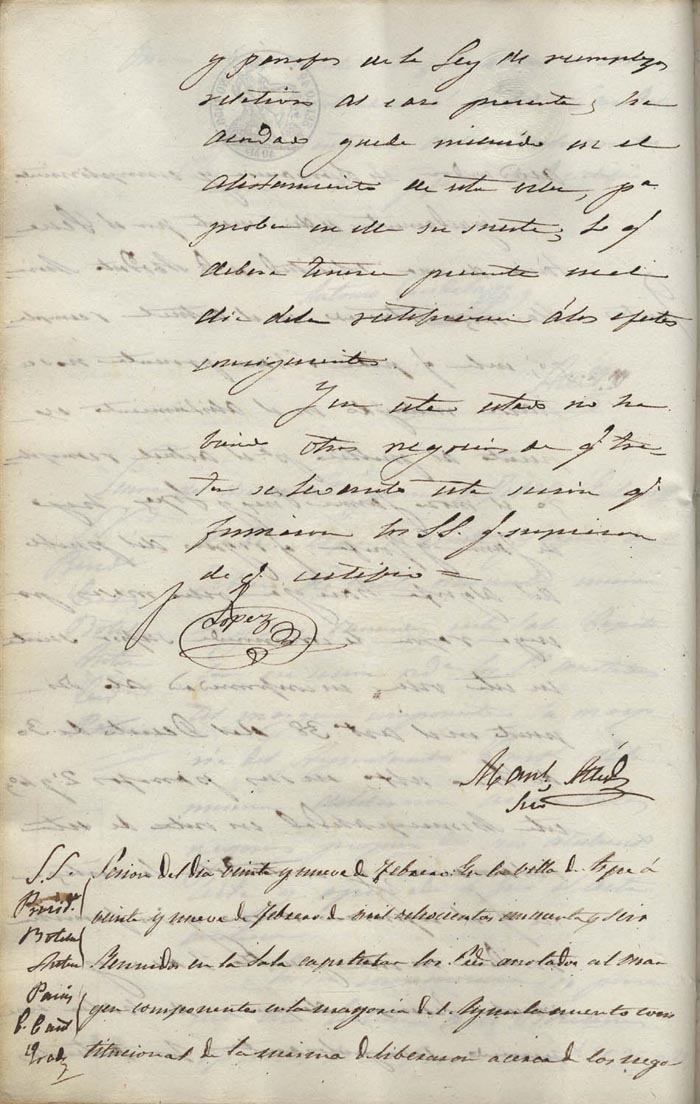 y parrafos de la Ley de reemplazos
relativos al caso presente, ha
acordado quede incluido en el
alistamiento de esta villa, pa
probar en ella su suerte; Lo q.
debera tenerse presente en el
dia dela rectificacion álos efectos
consiguientes
Y en este estado no ha
biendo otros negocios de q. tra
tar se levantó esta sesion q.
firmaron los SS. q. supieron
de q. certifico =
Lopez
Man.l
Srio
S.S. Sesion del dia veinte y nueve de Febrero. En la villa de á
Presid.te veinte y nueve de Febrero de mil ochocientos cincuenta y seis
Botella Reunidos en la Sala capitular los anotados al mar
gen componentes en la mayoria del Ayuntamiento cons
titucional de la misma deliberaron acerca de los nego-